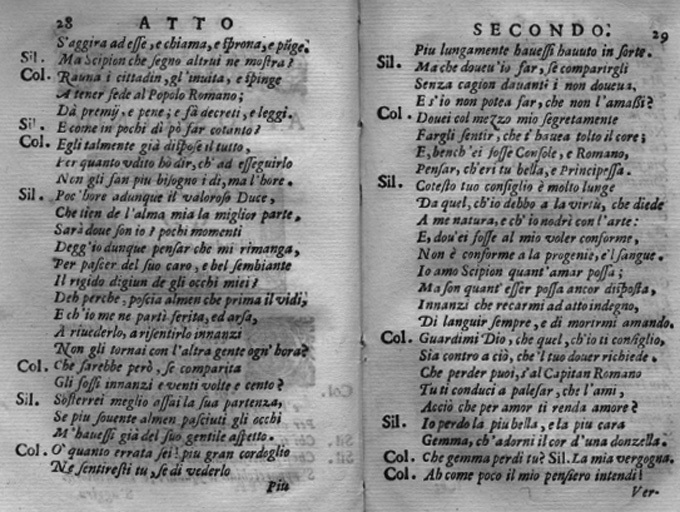 28 ATTO
S'aggira ad esse, e chiama, e sprona, e pūge.
Sil. Ma Scipion che segno altrui ne mostra?
Col. Rauna i cittadin, gl'inuita, e spinge
A tener fede al Popolo Romano;
Dà premij, e pene; e fà decreti, e leggi.
Sil. E come in pochi dì pò far cotanto?
Col. Egli talmente già dispose il tutto,
Per quanto vdito hò dir, ch'ad esseguirlo
Non gli fan piu bisogno i dì, ma l'hore.
Sil. Poc'hore adunque il valoroso Duce,
Che tien de l'alma mia la miglior parte,
Sarà doue son io? pochi momenti
Degg'io dunque pensar che mi rimanga,
Per pascer del suo caro, e bel sembiante
Il rigido digiun de gli occhi miei?
Deh perche, poscia almen che prima il vidi,
E ch'io me ne partì ferita, ed arsa,
A riuederlo, a risentirlo innanzi
Non gli tornai con l'altra gente ogn'hora?
Col. Che sarebbe però, se comparita
Gli fossi innanzi e venti volte e cento?
Sil. Sofferrei meglio assai la sua partenza,
Se piu souente almen pasciuti gli occhi
M'hauessi già del suo gentile aspetto.
Col. O' quanto errata sei! piu gran cordoglio
Ne sentiresti tu, se di vederlo
Piu
SECONDO. 29
Piu lungamente hauessi hauuto in sorte.
Sil. Ma che doueu'io far, se comparirgli
Senza cagion dauanti i non doueua,
E s'io non potea far, che non l'amassi?
Col. Douei col mezzo mio segretamente
Fargli sentir, che t'hauea tolto il core;
E, bench'ei fosse Console, e Romano,
Pensar, ch'eri tu bella, e Principessa.
Sil. Cotesto tuo consiglio è molto lunge
Da quel, ch'io debbo a la virtù, che diede
A me natura, e ch'io nodrì con l'arte:
E, dou'ei fosse al mio voler conforme,
Non è conforme a la progenie, e'l sangue.
Io amo Scipion quant'amar possa;
Ma son quant'esser possa ancor disposta,
Innanzi che recarmi ad atto indegno,
Di languir sempre, e di morirmi amando.
Col. Guardimi Dio, che quel, ch'io ti consiglio,
Sia contro a ciò, che'l tuo douer richiede.
Che perder puoi, s'al Capitan Romano
Tu ti conduci a palesar, che l'ami,
Acciò che per amor ti renda amore?
Sil. Io perdo la piu bella, e la piu cara
Gemma, ch'adorni il cor d'una donzella.
Col. Che gemma perdi tu? Sil. La mia vergogna.
Col. Ah come poco il mio pensiero intendi!
Ver-